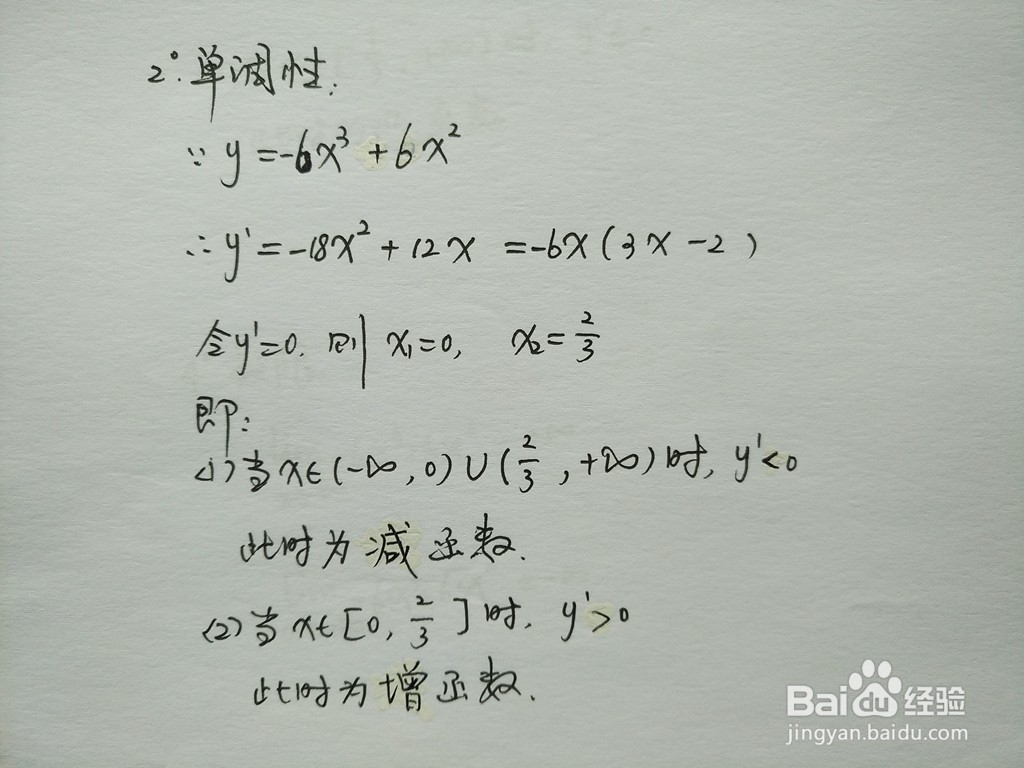 2°.单调性.
∵ y=-6x³+6x²
∴ y'=-18x²+12x =-6x(3x-2)
令y'=0. 则 x₁=0, x₂=2/3
即:
(1)当x∈(-∞,0)∪(2/3,+∞)时, y'<0
此时为减函数.
(2)当x∈[0,2/3]时, y'>0
此时为增函数.
Baidu经验
jingyan.baidu.com